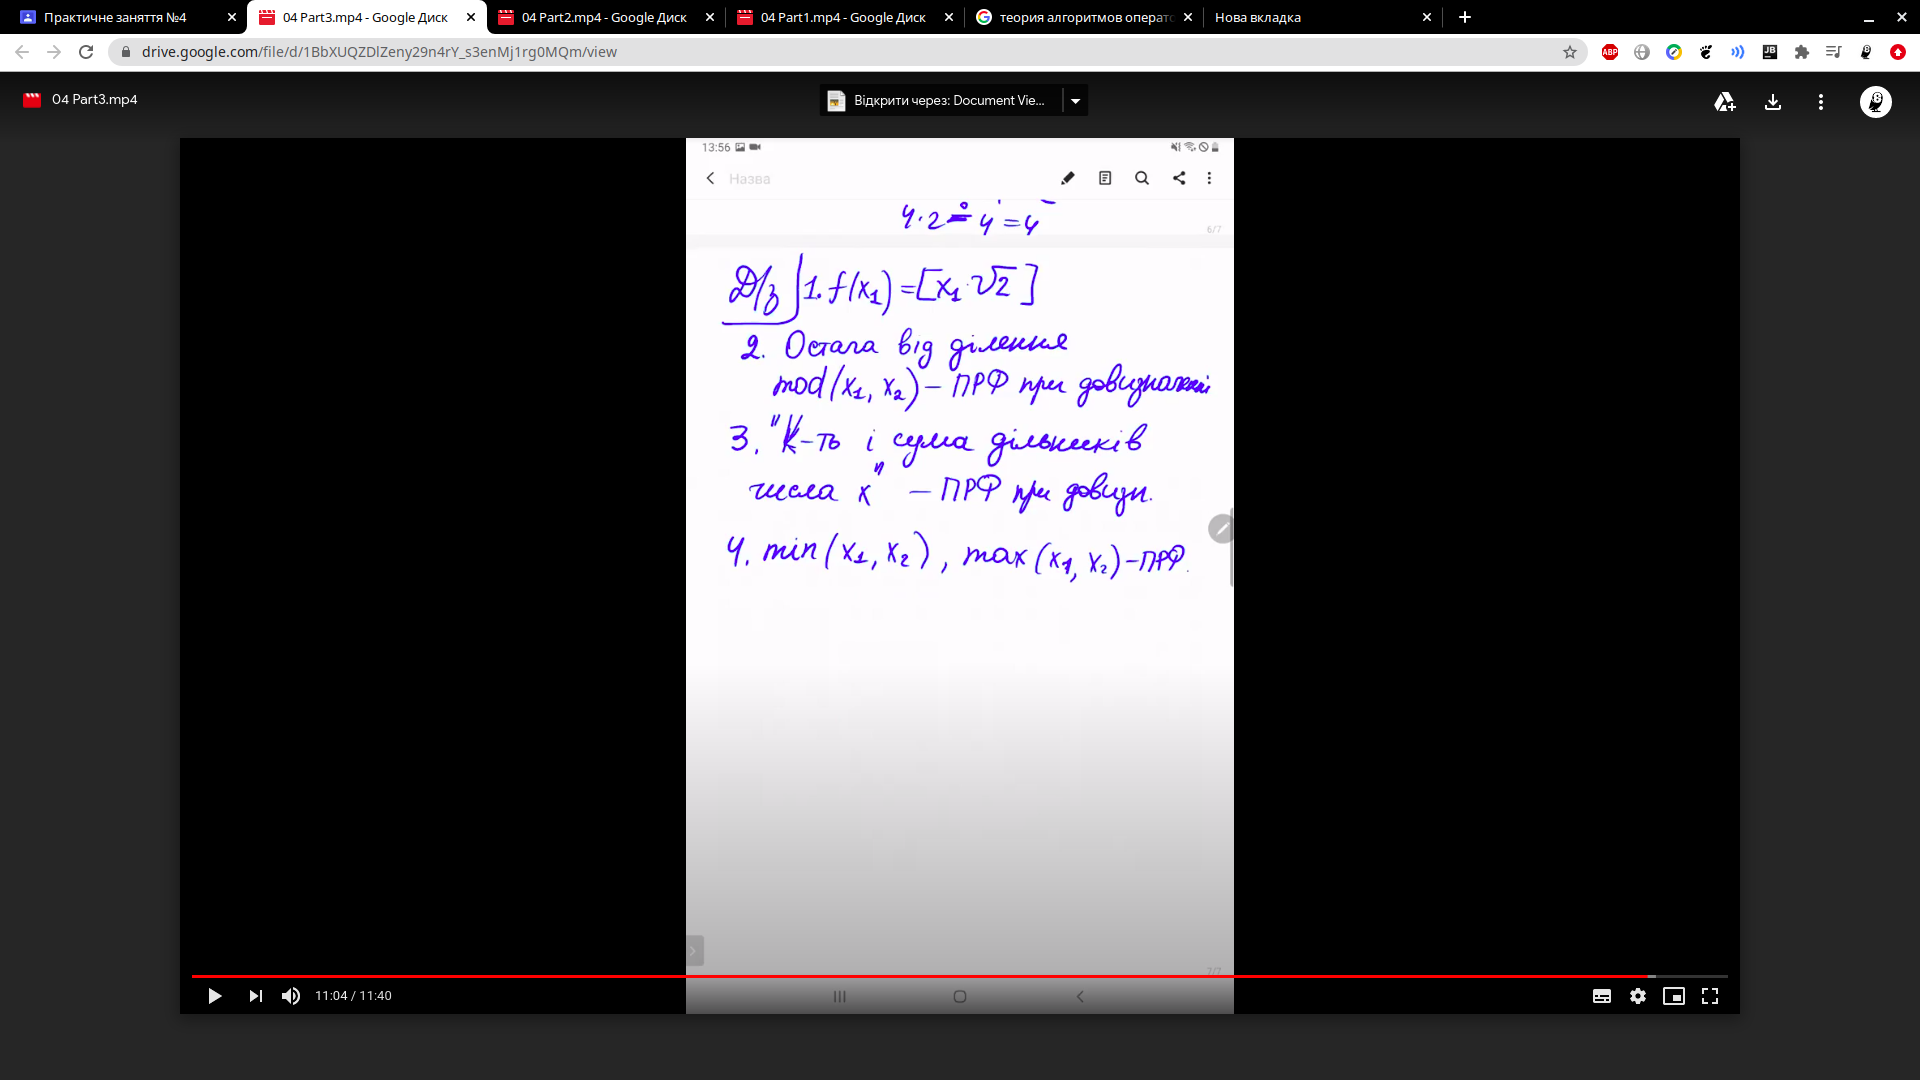 Практичне заняття №4
04 Part3.mp4 - Google Диск
04 Part2.mp4 - Google Диск
04 Part1.mp4 - Google Диск
теория алгоритмов операто
Нова вкладка
drive.google.com/file/d/1BbXUQZDlZeny29n4rY_s3enMj1rg0MQm/view
ABP
JB
04 Part3.mp4
Відкрити через: Document Vie...
13:56
Назва
4·2 = 4 = 4
6/7
Д/з 1. f(x₁) = [x₁·√2]
2. Остача від ділення
mod(x₁, x₂) – ПРФ при довизначенні
3. "К-ть і сума дільників
числа x" – ПРФ при довизн.
4. min(x₁, x₂), max(x₁, x₂) – ПРФ.
7/7
11:04 / 11:40